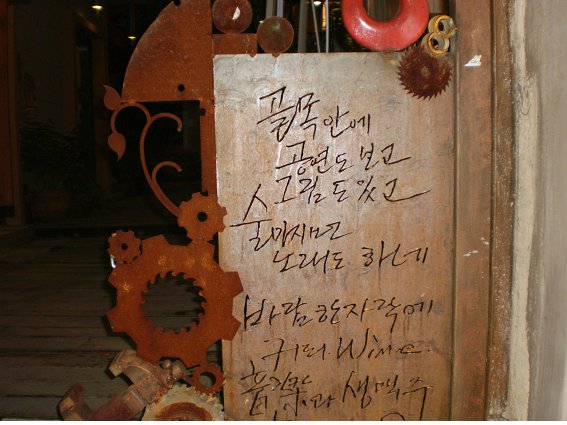 골목 안에
공연도 보고
그림도 있고
술 마시면
노래도 하네
바람 한자락에
커피. Wine.
생맥주